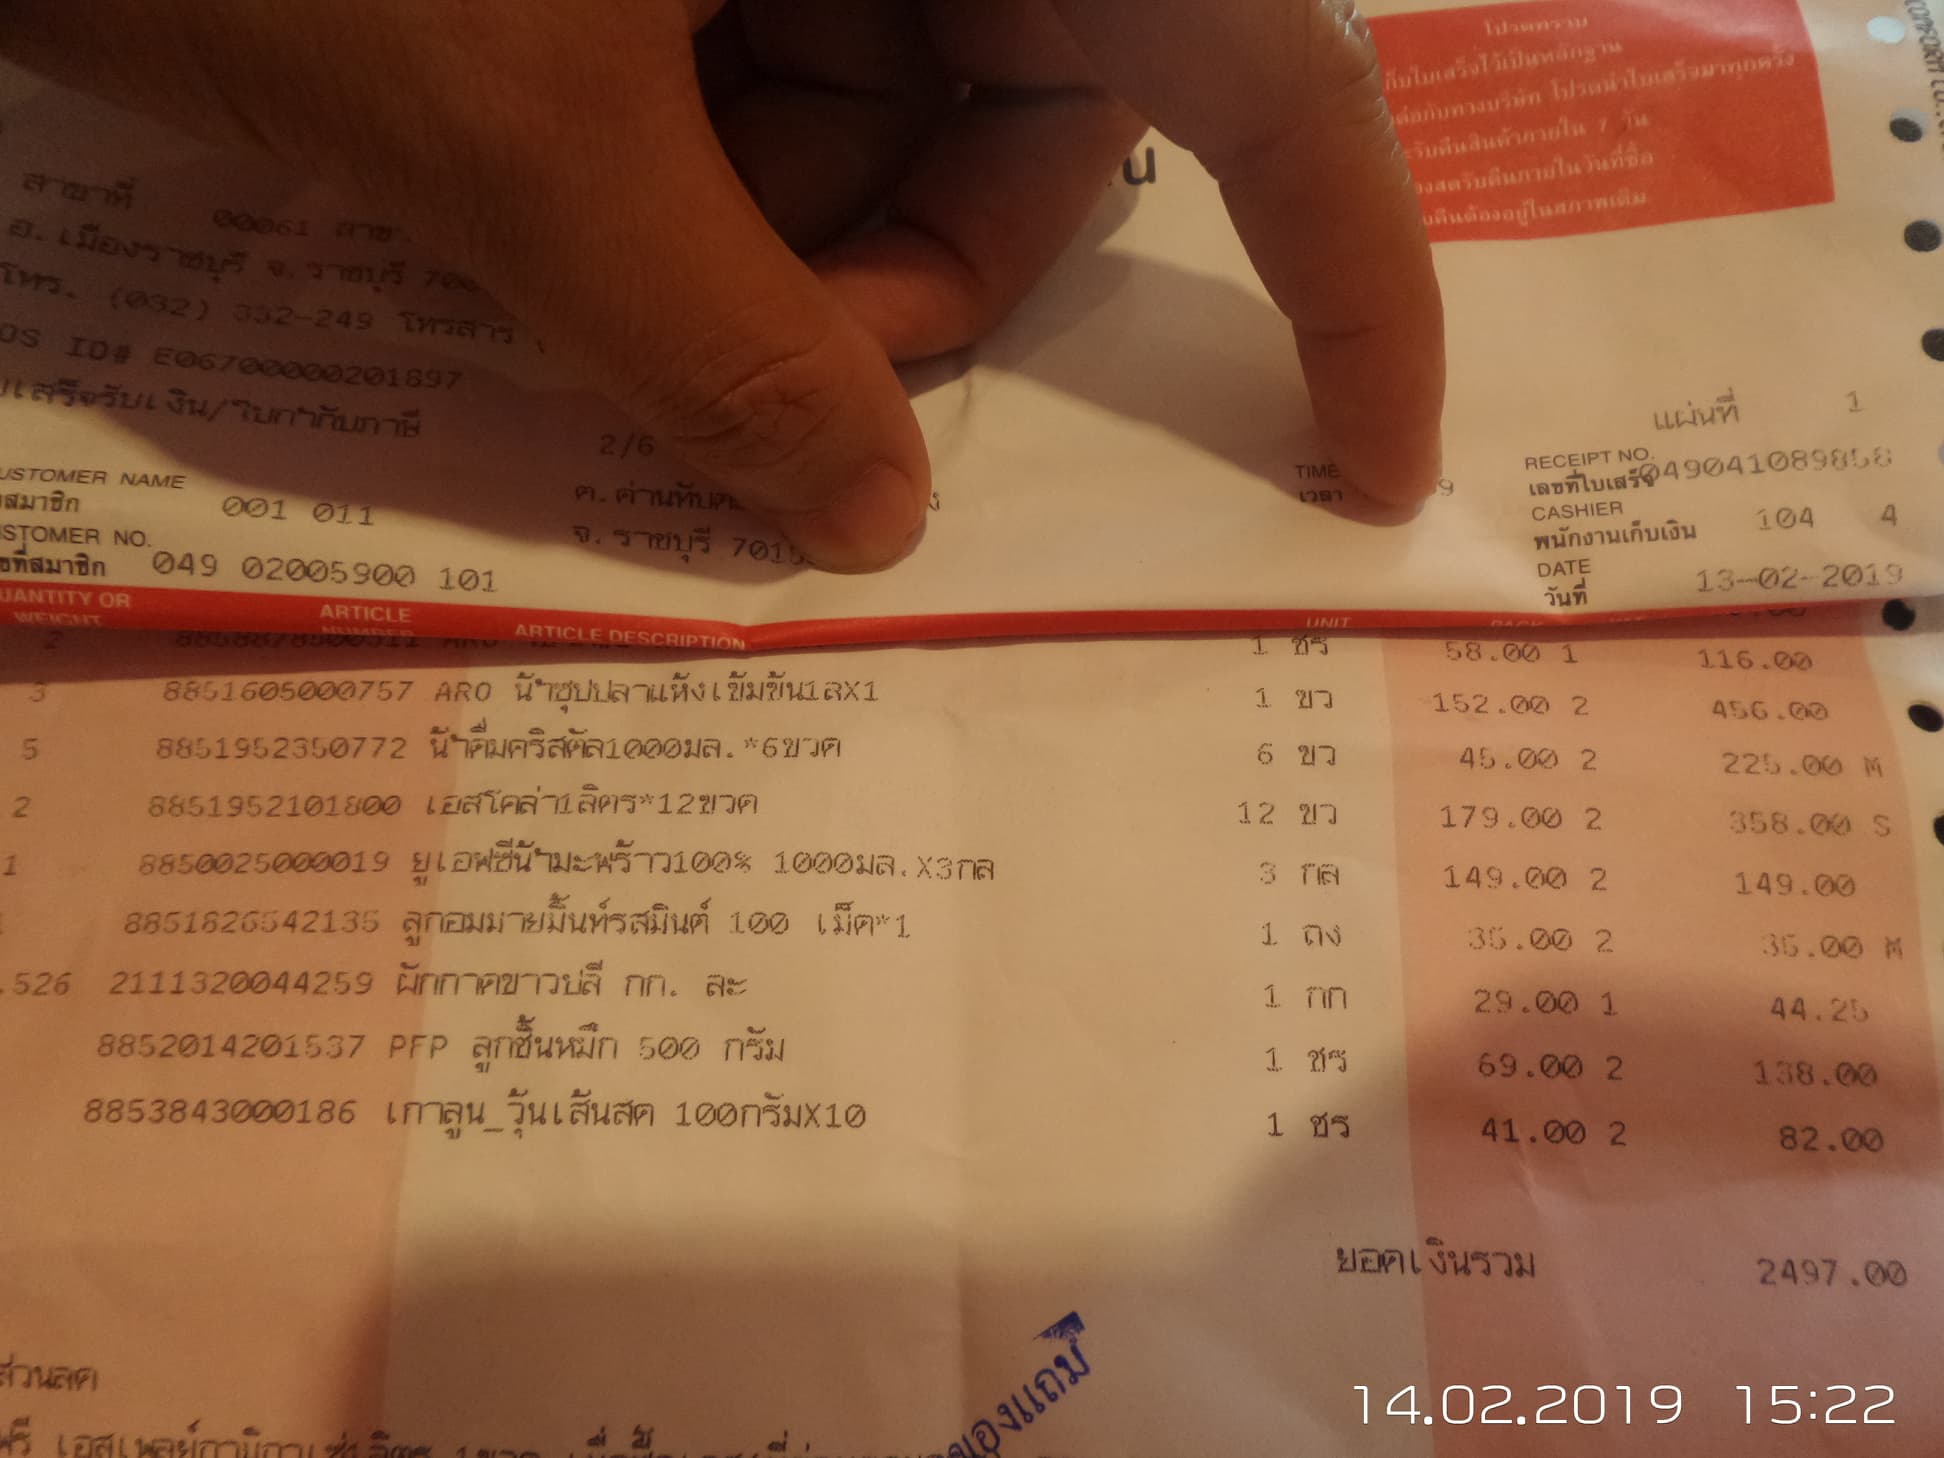 โปรดทราบ
เก็บใบเสร็จไว้เป็นหลักฐาน
ต่อกับทางบริษัท โปรดนำใบเสร็จมาทุกครั้ง
รับคืนสินค้าภายใน 7 วัน
รับคืนภายในวันที่ซื้อ
ต้องอยู่ในสภาพเดิม
สาขาที่ 00061 สาข.
อ.เมืองราชบุรี จ.ราชบุรี
โทร. (032) 332-249 โทรสาร
ID# E06700000201897
เสร็จรับเงิน/ใบกำกับภาษี
2/6
แผ่นที่ 1
CUSTOMER NAME
สมาชิก 001 011
TIME
เวลา
RECEIPT NO.
เลขที่ใบเสร็จ 049041089858
CASHIER
พนักงานเก็บเงิน 104 4
จ.ราชบุรี
NO.
ที่สมาชิก 049 02005900 101
DATE
วันที่ 13-02-2019
QUANTITY OR WEIGHT ARTICLE NUMBER ARTICLE DESCRIPTION UNIT
2 1 ชร 58.00 1 116.00
3 8851605000757 ARO น้ำซุปปลาแห้งเข้มข้น1ลX1 1 ขว 152.00 2 456.00
5 8851952350772 น้ำดื่มคริสตัล1000มล.*6ขวด 6 ขว 45.00 2 225.00 M
2 8851952101800 เอสโคล่า1ลิตร*12ขวด 12 ขว 179.00 2 358.00 S
1 8850025000019 ยูเอฟซีน้ำมะพร้าว100% 1000มล.X3กล 3 กล 149.00 2 149.00
8851826542135 ลูกอมมายมิ้นท์รสมินต์ 100 เม็ด*1 1 ถง 35.00 2 35.00 M
.526 2111320044259 ผักกาดขาวปลี กก. ละ 1 กก 29.00 1 44.25
8852014201537 PFP ลูกชิ้นหมึก 500 กรัม 1 ชร 69.00 2 138.00
8853843000186 เกาลูน_วุ้นเส้นสด 100กรัมX10 1 ชร 41.00 2 82.00
ยอดเงินรวม 2497.00
ส่วนลด
ของแถม
14.02.2019 15:22